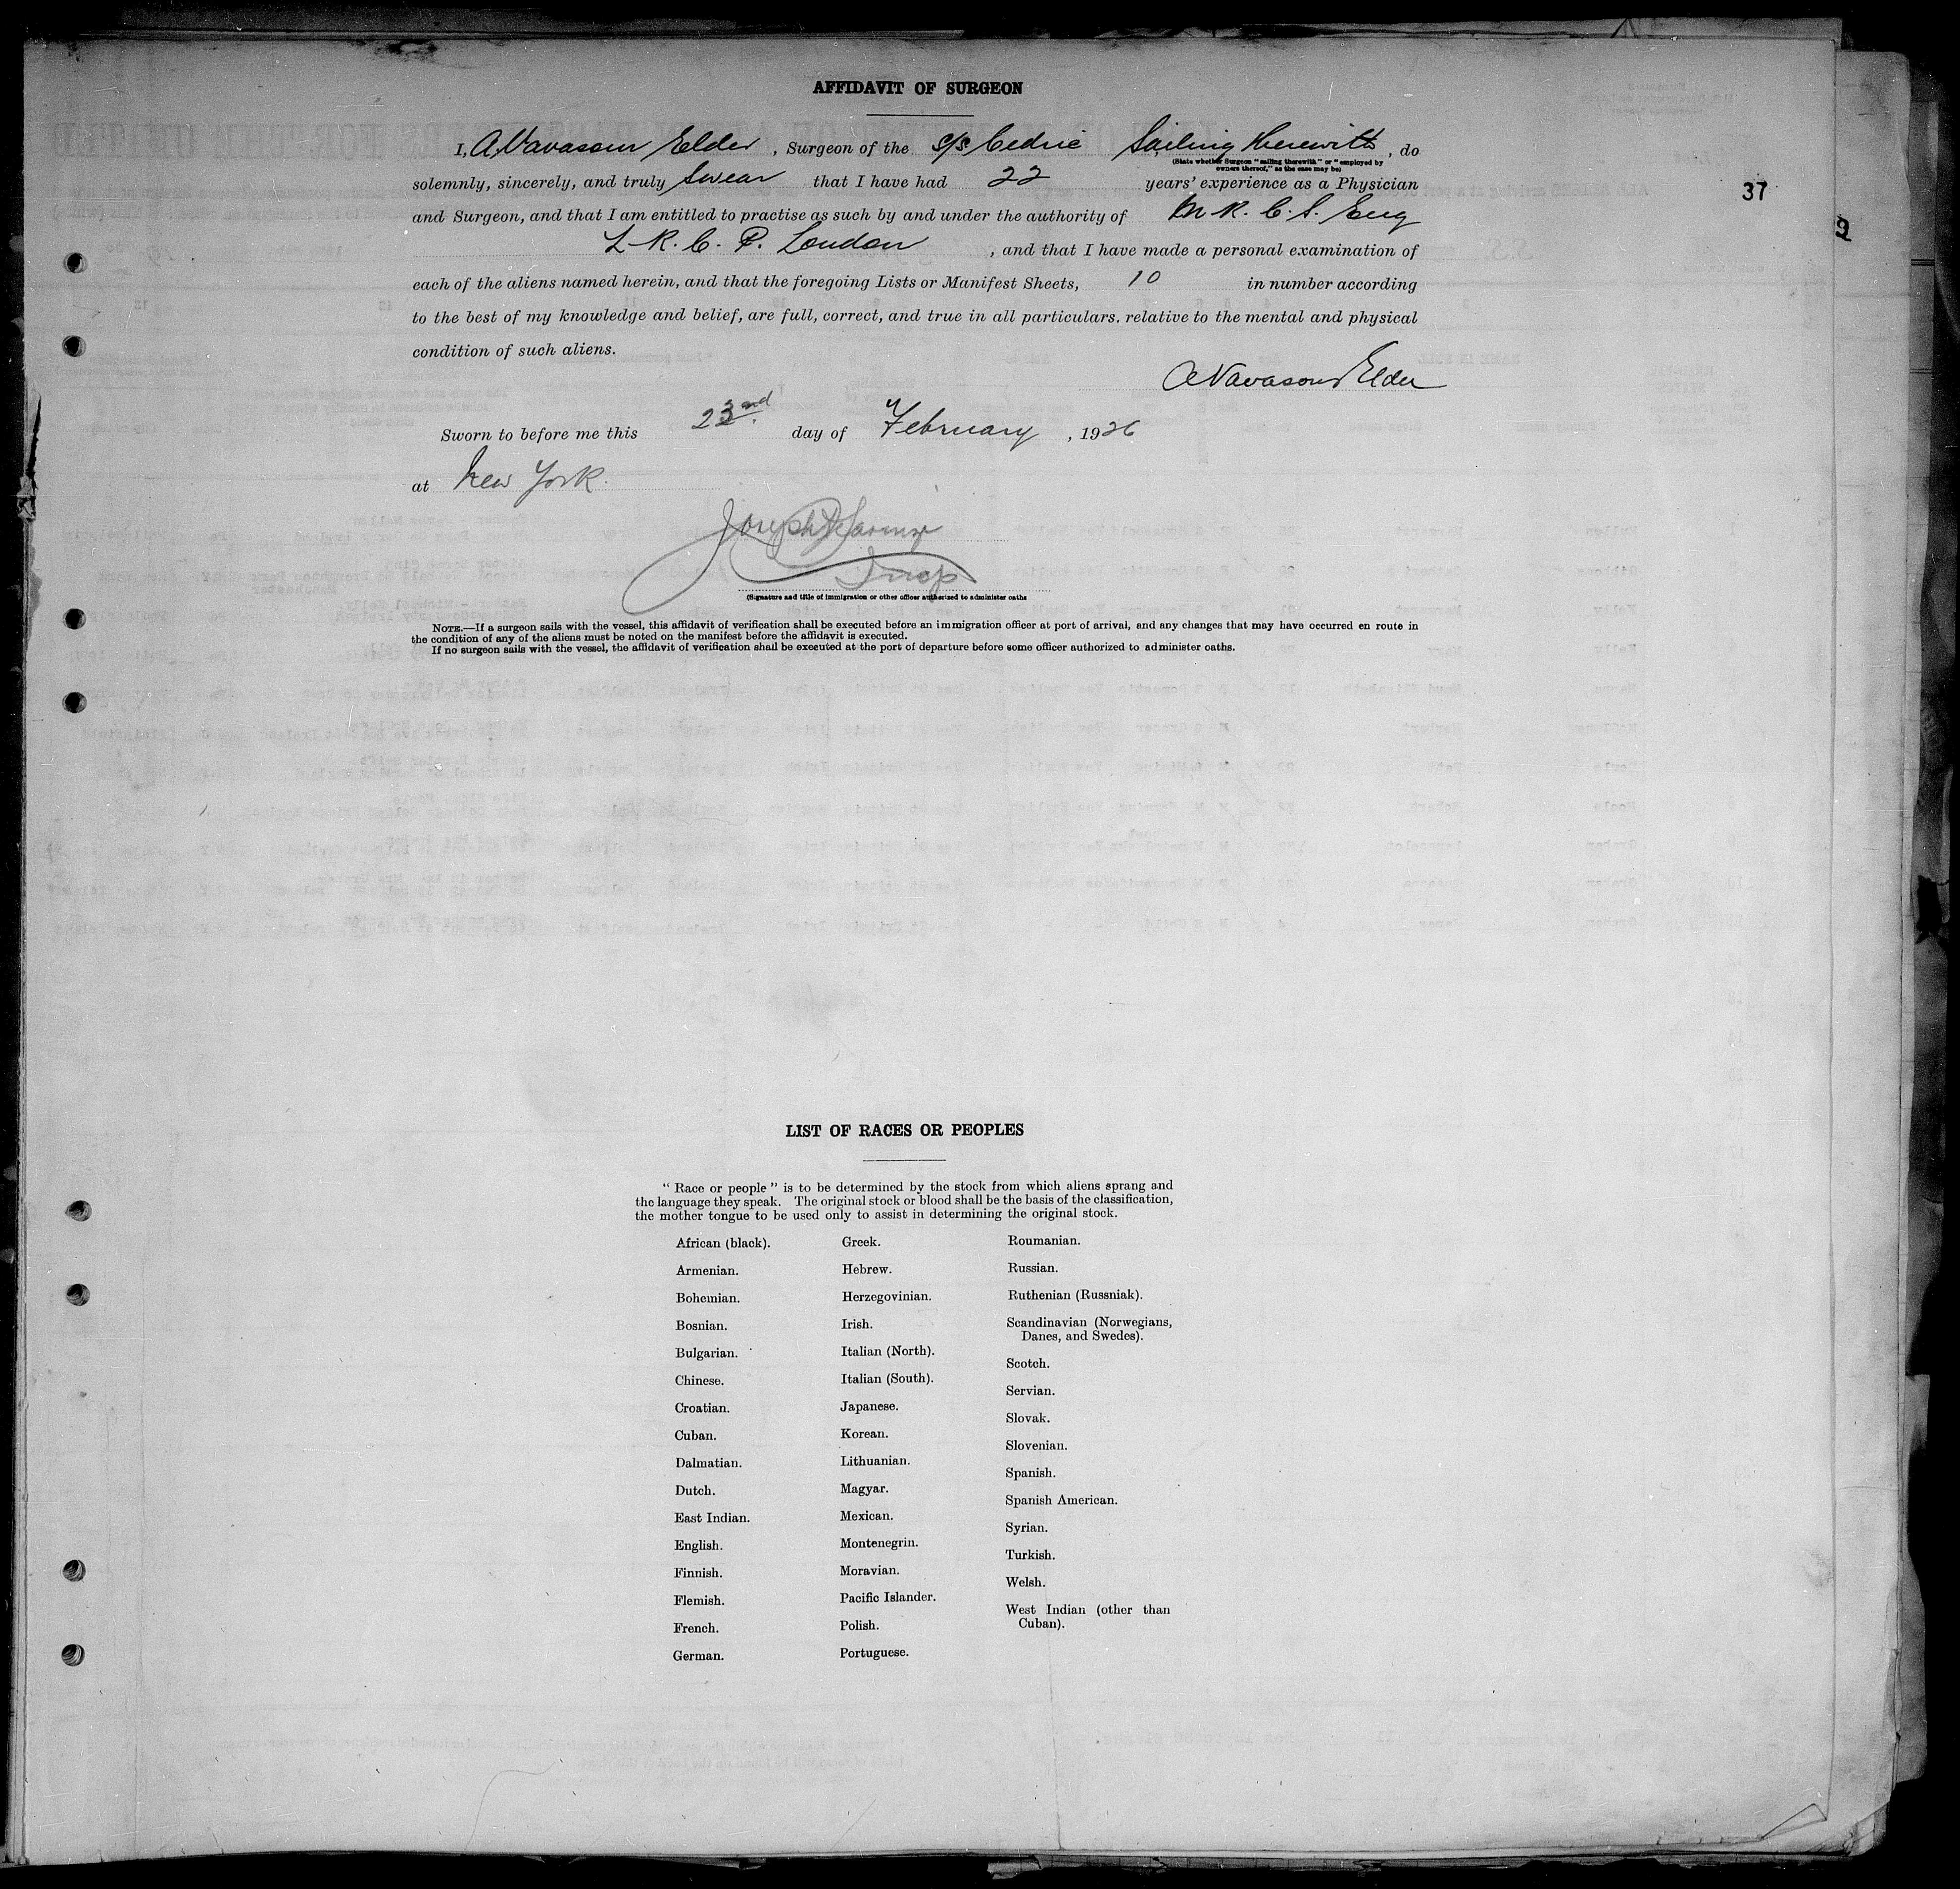 AFFIDAVIT OF SURGEON
I, A. Vavasour Elder, Surgeon of the S/S Cedric Sailing therewith, do
(State whether Surgeon "sailing therewith" or "employed by
owners thereof," as the case may be)
solemnly, sincerely, and truly swear that I have had 22 years' experience as a Physician
37
and Surgeon, and that I am entitled to practise as such by and under the authority of M.R.C.S. Eng
L.R.C.P. London, and that I have made a personal examination of
each of the aliens named herein, and that the foregoing Lists or Manifest Sheets, 10 in number according
to the best of my knowledge and belief, are full, correct, and true in all particulars. relative to the mental and physical
condition of such aliens.
A Vavasour Elder
Sworn to before me this 23nd day of February, 1926
at New York.
Joseph
Insp
(Signature and title of immigration or other officer authorized to administer oaths
NOTE.—If a surgeon sails with the vessel, this affidavit of verification shall be executed before an immigration officer at port of arrival, and any changes that may have occurred en route in
the condition of any of the aliens must be noted on the manifest before the affidavit is executed.
If no surgeon sails with the vessel, the affidavit of verification shall be executed at the port of departure before some officer authorized to administer oaths.
LIST OF RACES OR PEOPLES
"Race or people" is to be determined by the stock from which aliens sprang and
the language they speak. The original stock or blood shall be the basis of the classification,
the mother tongue to be used only to assist in determining the original stock.
African (black).
Armenian.
Bohemian.
Bosnian.
Bulgarian.
Chinese.
Croatian.
Cuban.
Dalmatian.
Dutch.
East Indian.
English.
Finnish.
Flemish.
French.
German.
Greek.
Hebrew.
Herzegovinian.
Irish.
Italian (North).
Italian (South).
Japanese.
Korean.
Lithuanian.
Magyar.
Mexican.
Montenegrin.
Moravian.
Pacific Islander.
Polish.
Portuguese.
Roumanian.
Russian.
Ruthenian (Russniak).
Scandinavian (Norwegians,
Danes, and Swedes).
Scotch.
Servian.
Slovak.
Slovenian.
Spanish.
Spanish American.
Syrian.
Turkish.
Welsh.
West Indian (other than
Cuban).